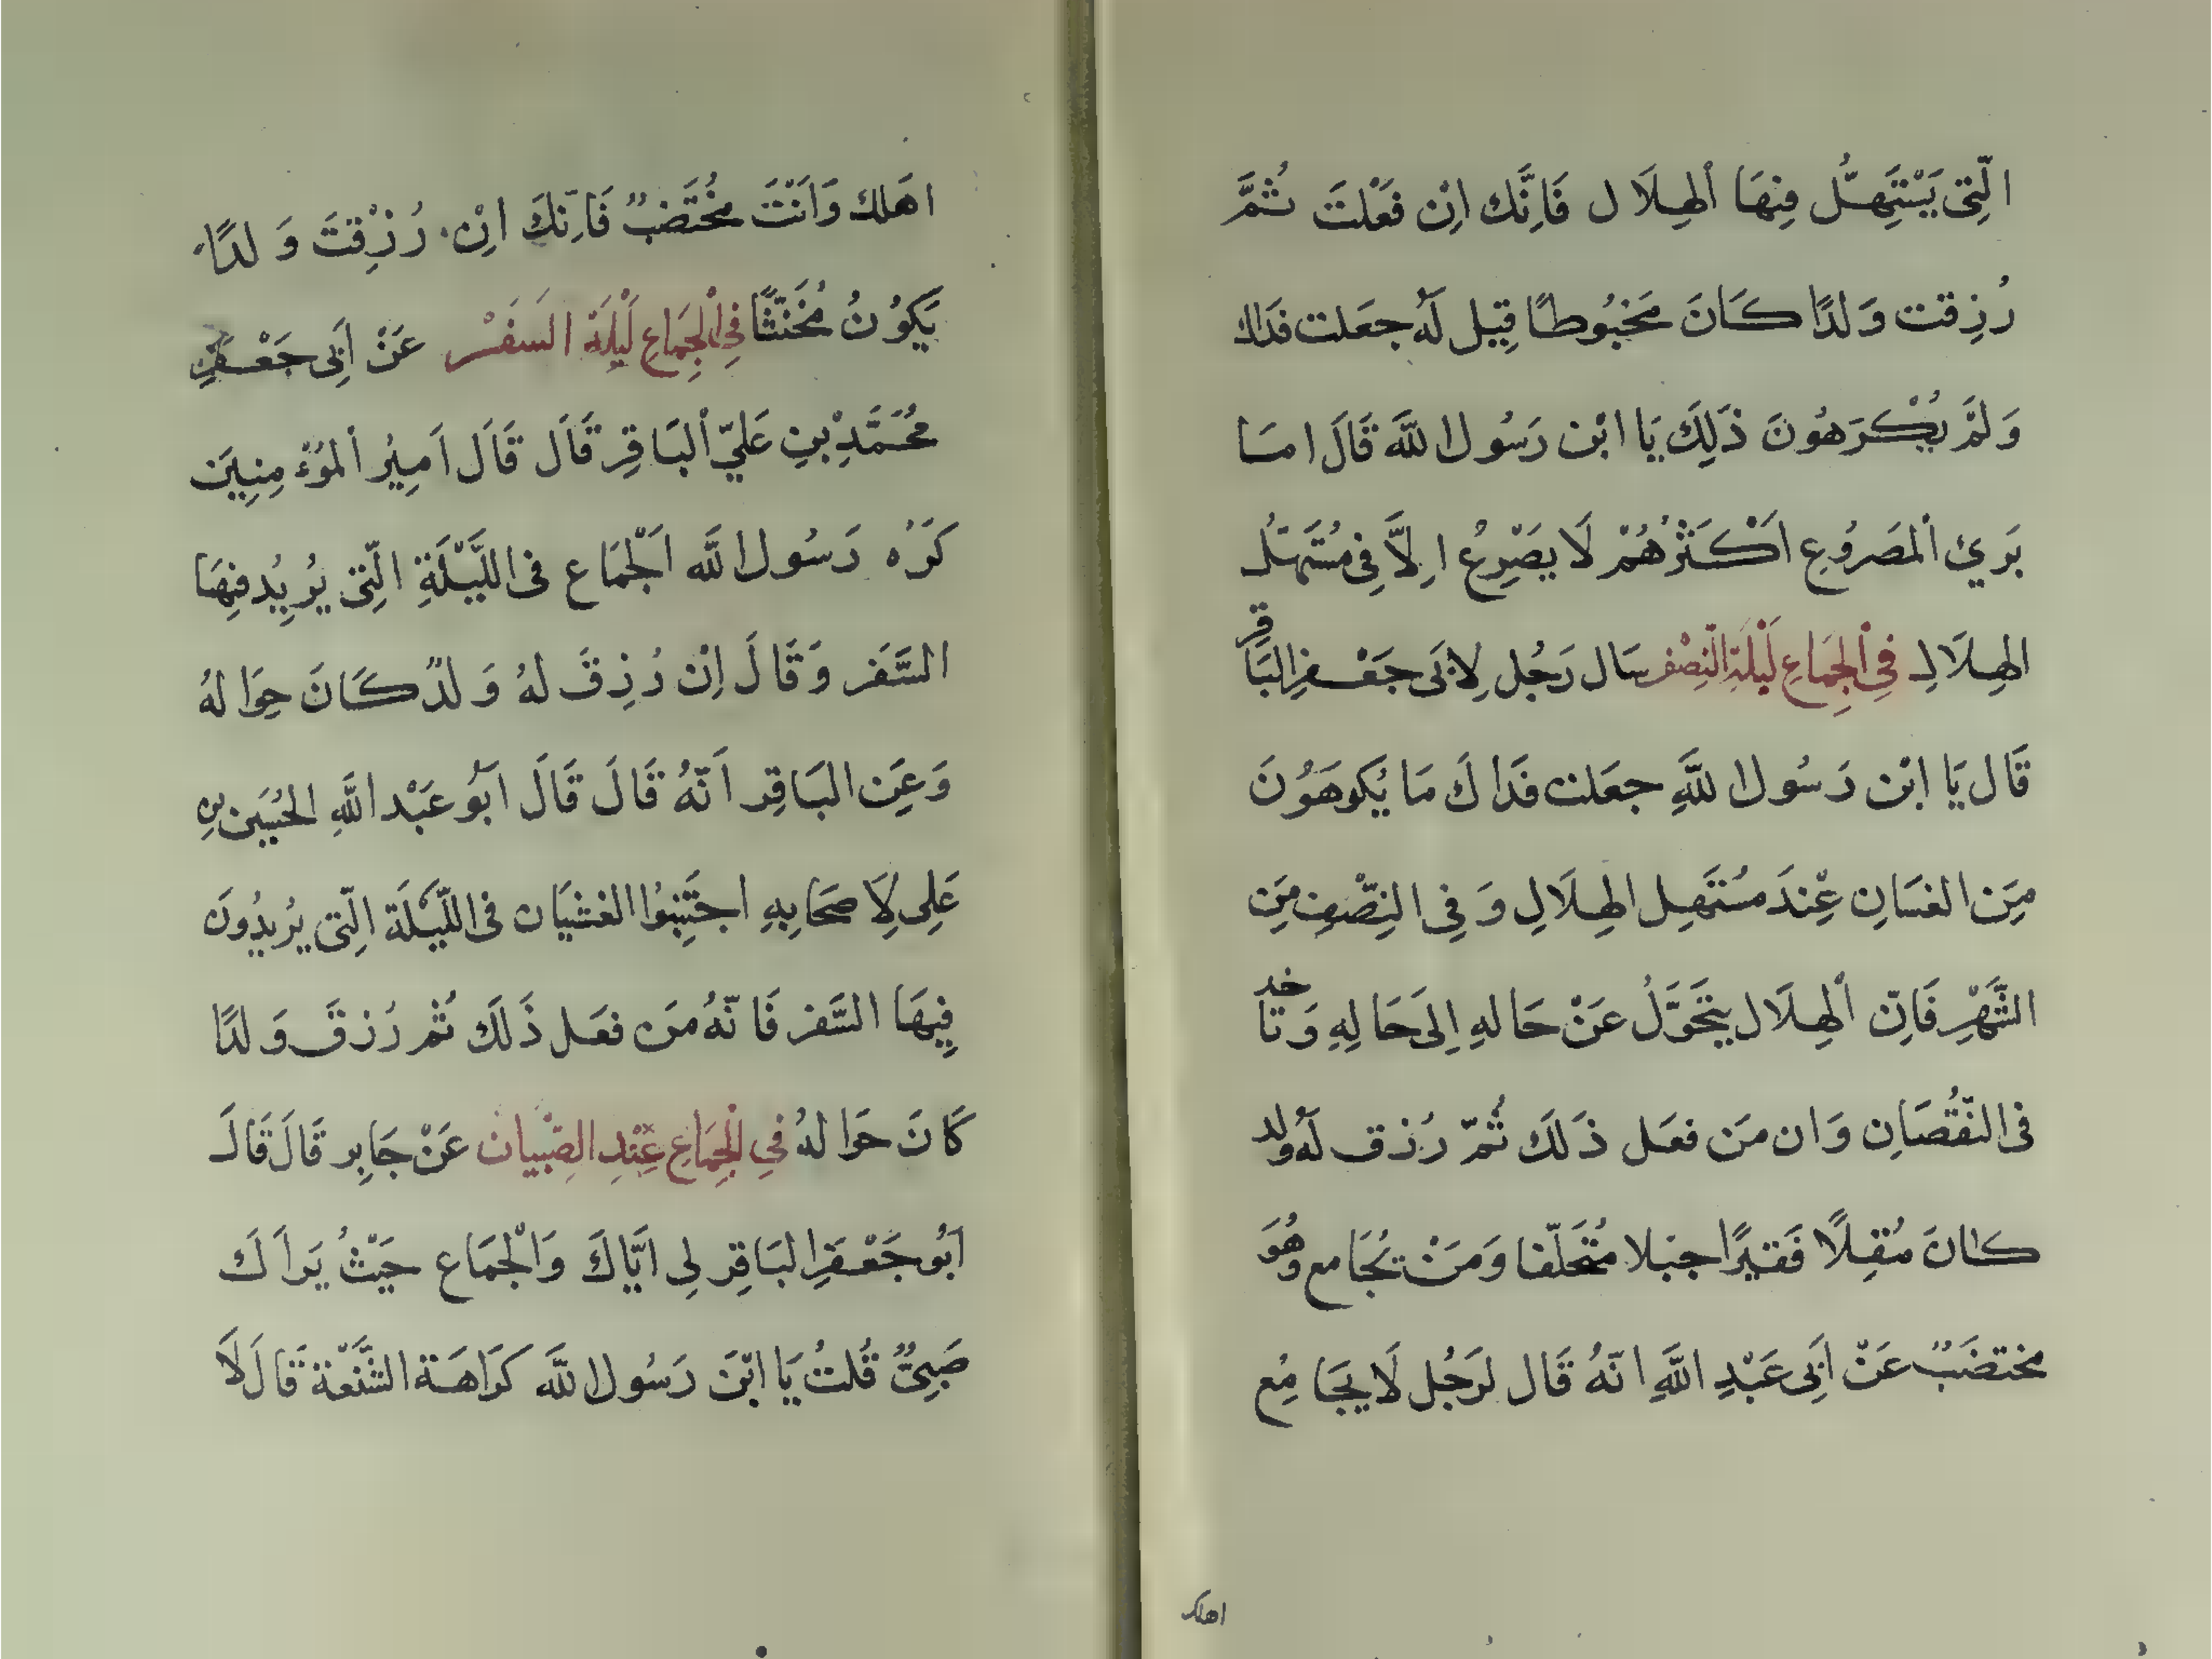 الَّتِى يَسْتَهِلُّ فِيهَا الْهِلَال فَاِنَّك اِنْ فَعَلْتَ ثُمَّ
رُزِقت وَلدًا كَانَ مَخبُوطًا قِيل لَهُ جعَلت فدَاك
وَلمَ يُكْرَهوُنَ ذَلِكَ يَا ابْن رَسُول اللَّه قَالَ امَا
يَري الْمصَروُع اَكْثَرُهُمْ لَا يصْرِعُ اِلَّا فِى مُسْتَهَلّ
الهِلَالِ فِى الْجِمَاعِ لَيْلَةِ النِّصْف سَال رَجُل لِابَى جَعْفرِ البَاقِر
قَال يَا ابْن رَسُول اللَّهِ جعَلت فَدَاكَ مَا يَكوهَوُنَ
مِنَ الغسَانِ عِنْدَ مسُتَهِل الهِلَالِ وَفِى النِّصْفِ مِنَ
الشَّهْرِ فَاِنّ الْهِلَال يتَحَوَّلُ عَنْ حَالهِ اِلىَ حَالِهِ وَتَاخد
فى النّقُصَانِ وَان مَن فعَل ذَلَكَ ثُمّ رُزق لَهُ ولد
كانَ مُقِلًا فَقيرًا جبلا مُتَخَلّفا وَمَنْ يُجَامع وهُوَ
مختضَبٌ عَنْ اَبِى عَبْدِ اللَّهِ انّهُ قَال لرَجُل لَا يجَامِع
اهلك
اهَلك وَاَنْتَ مخُتَضبٌ فَاِنّكَ اِنْ رُزْقِتَ وَلدًا
يَكوُنُ مُخَنثًا فِى الْجِمَاعِ لَيْلَة السَفَر عَنْ اَبِى جَعْفَرٍ
مُحَمَّدِ بْنِ عَليّ الْبَاقِر قَالَ قَالَ اَمِيُر الْموُءْمِنِينَ
كَرَه رَسُول اللَّه اَلْجمَاع فى اللَّيْلَةِ الَّتِى يُريُد فِيهَا
السَّفَر وَقَالَ اِنْ رُزِقَ لهُ وَلدٌ كَانَ حِوَالهُ
وَعَنِ البَاقِر اَنّهُ قَالَ قَالَ اَبُو عَبْد اللَّهِ الحُسَين بن
عَلِى لِاَصحَابِهِ اجتَنِبوُا الغشيَان فى اللّيْلَة الّتِى يُريدُونَ
فِيهَا السَّفر فَانّهُ مَن فعَل ذَلَك ثُمْ رُزقَ وَلدًا
كَانَ حَوَالهُ فِي الْجِمَاعِ عِنْدِ الصِبْيان عَنْ جَابِر قَالَ قَالَ
اَبُو جَعْفَرِ البَاقِر لِى اَيّاكَ وَالْجمَاع حَيْثُ يَراَكَ
صَبِىٌّ قُلتُ يَا ابْنَ رَسُول اللَّه كَرَاهَة الشَّنْعَة قَالَ لَا